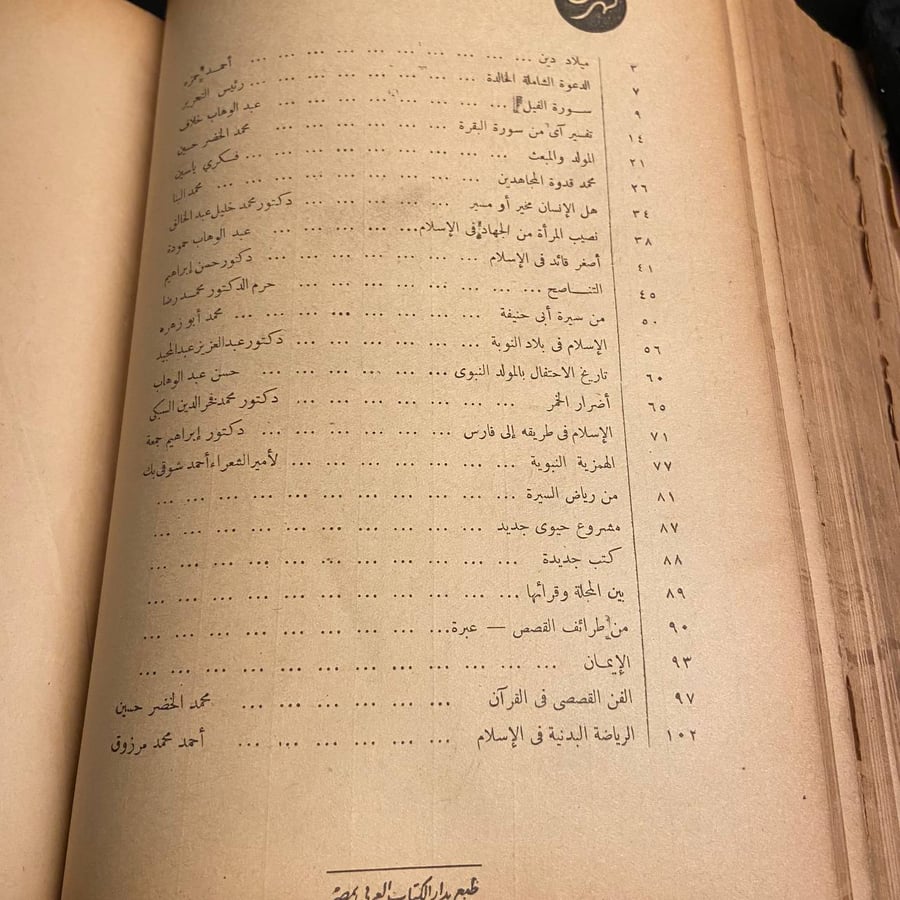 فهرس
٣ ميلاد دين ... ... ... ... ... ... ... ... أحمد حمزه
٧ الدعوة الشاملة الخالدة ... ... ... ... ... ... ... رئيس التحرير
٩ سورة الفيل ... ... ... ... ... ... ... ... عبد الوهاب خلاف
١٤ تفسير آى من سورة البقرة ... ... ... ... ... ... محمد الخضر حسين
٢١ المولد والمبعث ... ... ... ... ... ... ... ... ... فكري ياسين
٢٦ محمد قدوة المجاهدين ... ... ... ... ... ... ... ... محمد البنا
٣٤ هل الإنسان مخير أو مسير ... ... ... ... ... دكتور محمد خليل عبد الخالق
٣٨ نصيب المرأة من الجهاد في الإسلام ... ... ... ... ... عبد الوهاب حمودة
٤١ أصغر قائد فى الإسلام ... ... ... ... ... ... ... دكتور حسن إبراهيم
٤٥ التناصح ... ... ... ... ... ... ... ... حرم الدكتور محمد رضا
٥٠ من سيرة أبى حنيفة ... ... ... ... ... ... ... ... محمد أبو زهره
٥٦ الإسلام فى بلاد النوبة ... ... ... ... ... ... دكتور عبد العزيز عبد المجيد
٦٠ تاريخ الاحتفال بالمولد النبوى ... ... ... ... ... ... حسن عبد الوهاب
٦٥ أضرار الخمر ... ... ... ... ... ... ... دكتور محمد فخر الدين السبكى
٧١ الإسلام فى طريقه إلى فارس ... ... ... ... ... ... دكتور إبراهيم جمعة
٧٧ الهمزية النبوية ... ... ... ... ... ... ... لأمير الشعراء أحمد شوقى بك
٨١ من رياض السيرة ... ... ... ... ... ... ... ... ... ...
٨٧ مشروع حيوى جديد ... ... ... ... ... ... ... ... ... ...
٨٨ كتب جديدة ... ... ... ... ... ... ... ... ... ... ...
٨٩ بين المجلة وقرائها ... ... ... ... ... ... ... ... ... ... ...
٩٠ من طرائف القصص — عبرة ... ... ... ... ... ... ... ... ...
٩٣ الإيمان ... ... ... ... ... ... ... ... ... ... ... ...
٩٧ الفن القصصى فى القرآن ... ... ... ... ... ... محمد الخضر حسين
١٠٢ الرياضة البدنية فى الإسلام ... ... ... ... ... ... أحمد محمد مرزوق
طبع بدار الكتاب العربى بمصر